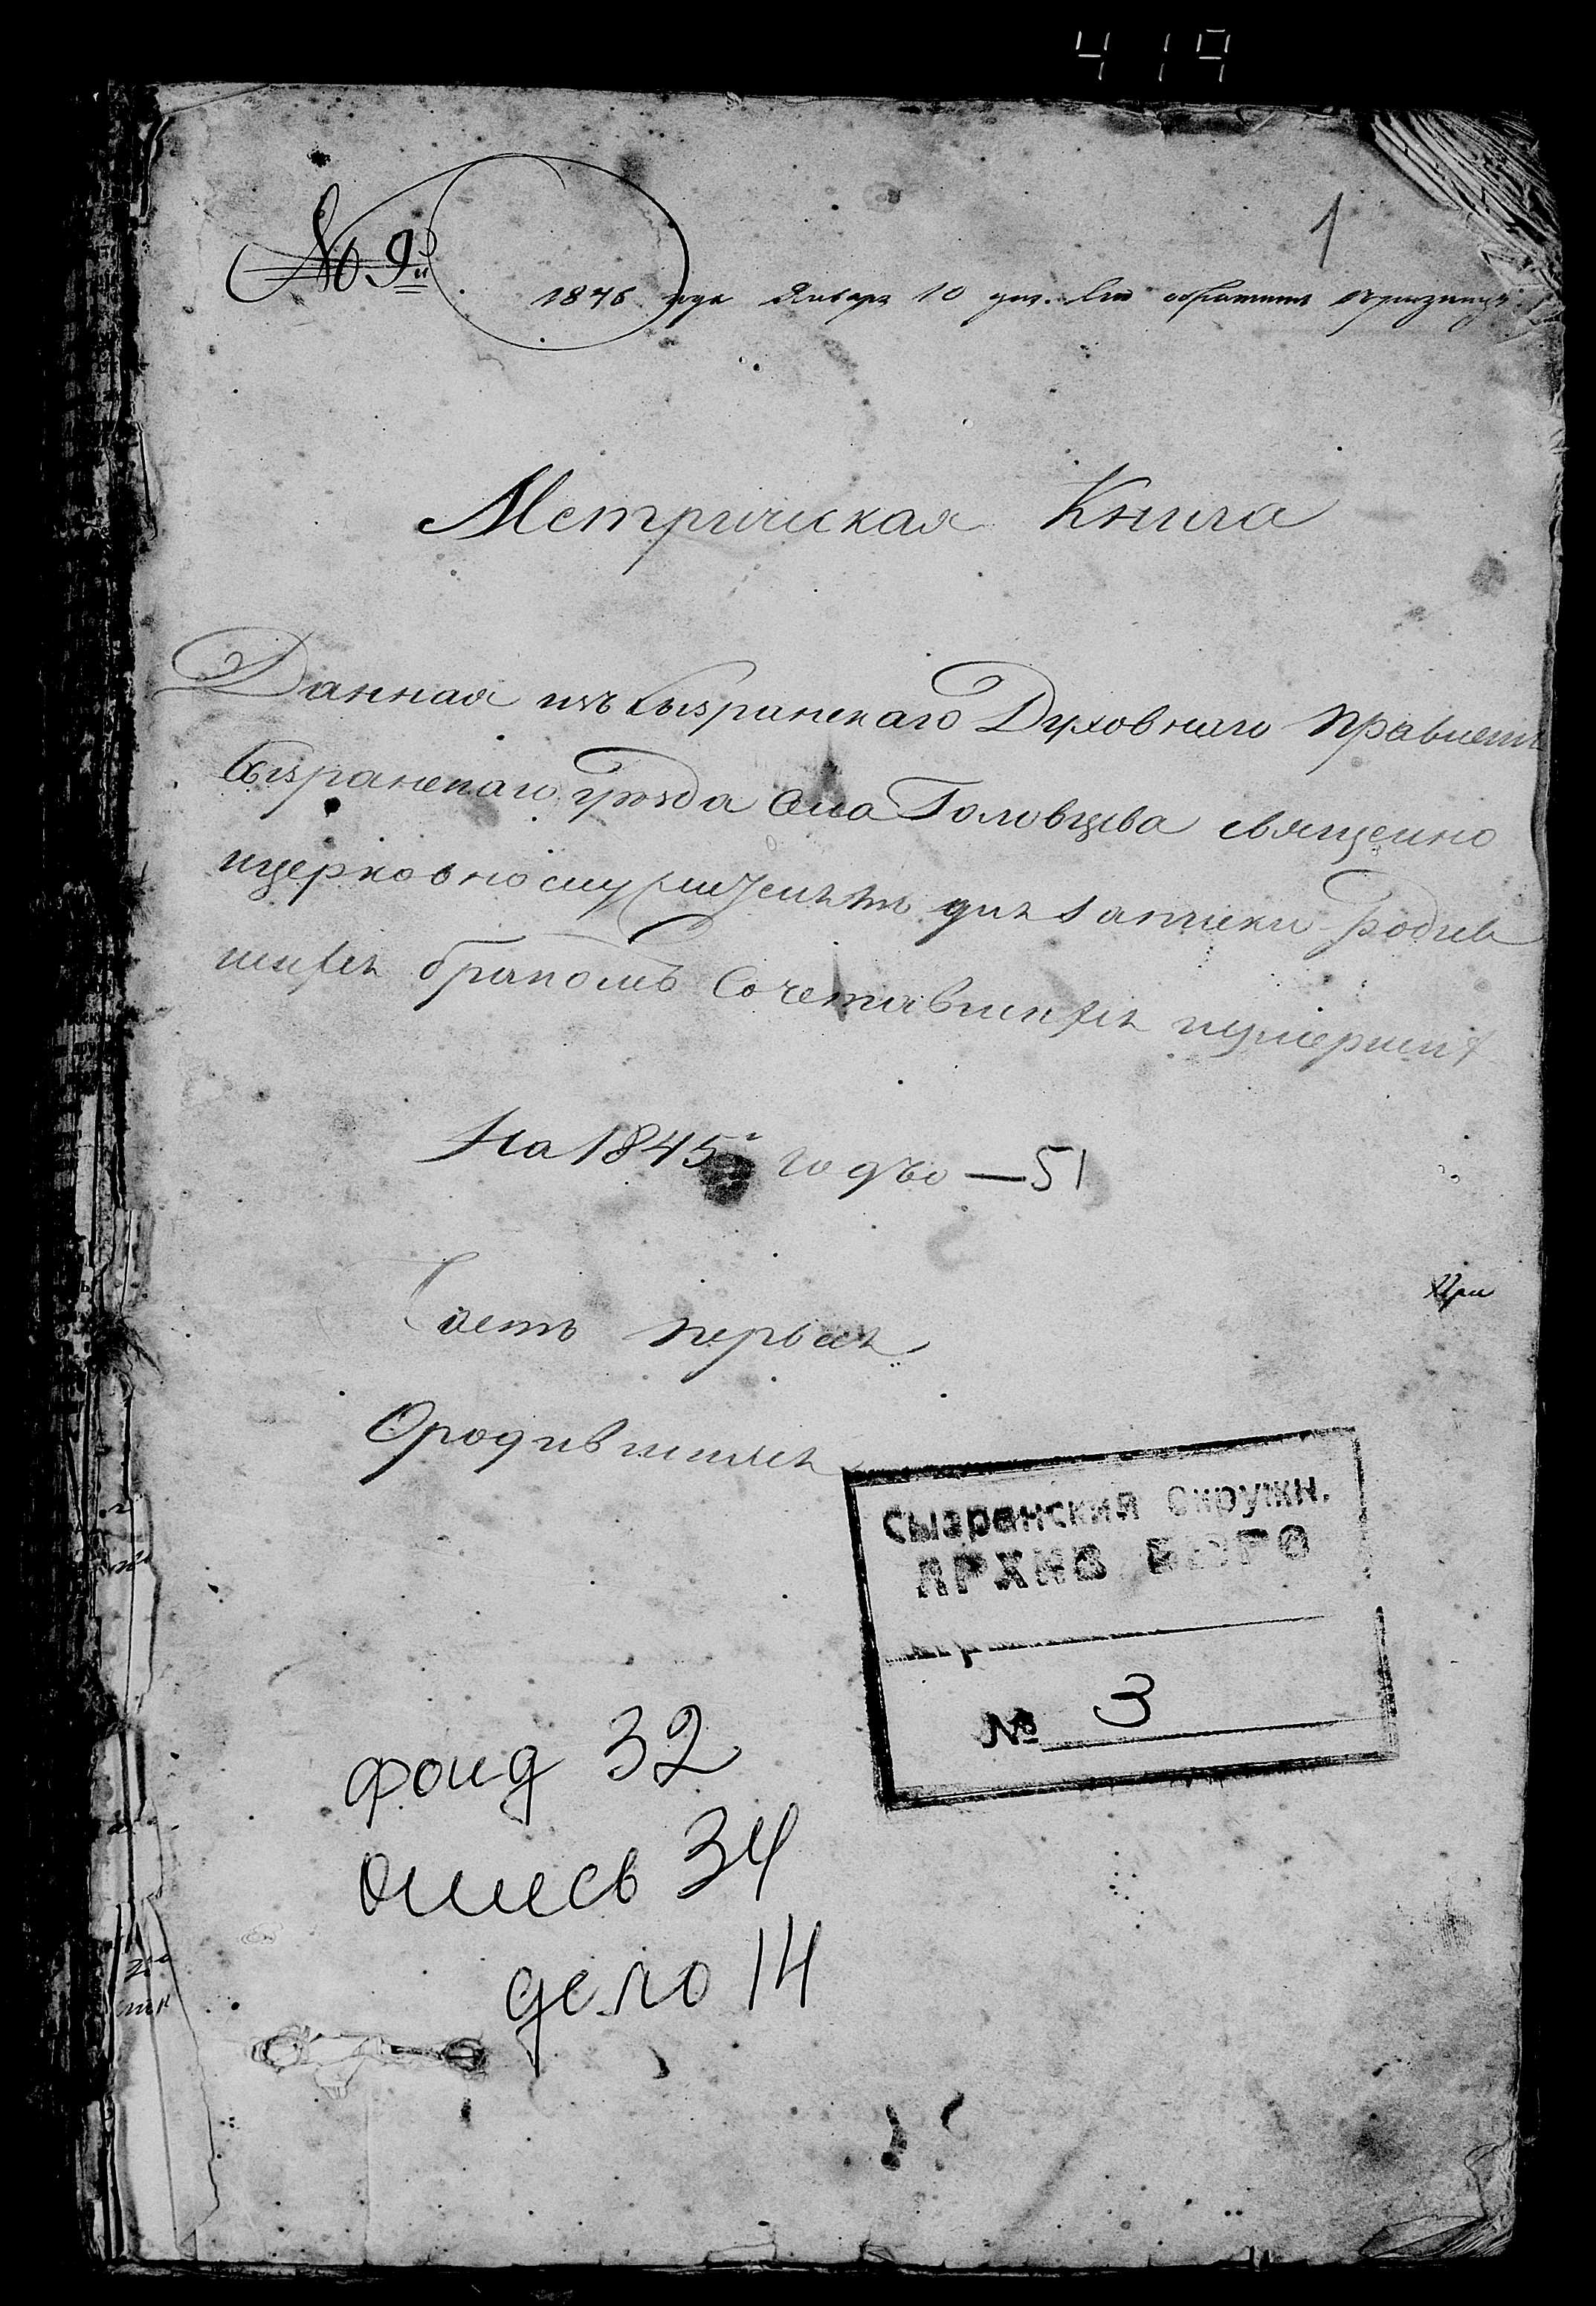 419
1
№ 9й
1846 года Января 10 дня.
Метрическая Книга
Данная изъ Сызранскаго Духовнаго Правления
Сызранскаго уѣзда села Головцева священно
ицерковнослужителямъ для записки Родив
шихся бракомъ Сочетавшихся иумершихъ
На 1845й годъ — 51
При
Часть первая
Ородившихся
Сызранский Окружн.
АРХИВ БЮРО
№ 3
фонд 32
опись 34
дело 14